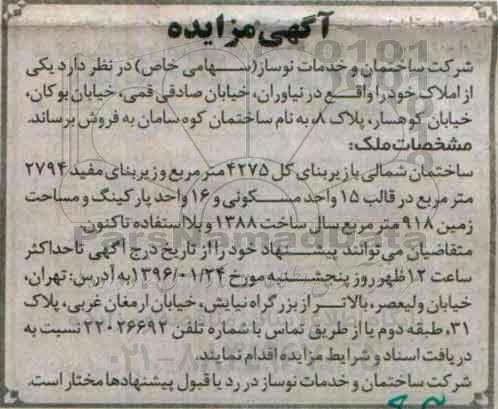 آگهی مزایده
شرکت ساختمان و خدمات نوساز(سهامی خاص) در نظر دارد یکی
از املاک خود را واقع در نیاوران، خیابان صادقی قمی، خیابان بوکان،
خیابان کوهسار، پلاک ۸، به نام ساختمان کوه سامان به فروش برساند.
مشخصات ملک:
ساختمان شمالی با زیر بنای کل ۴۲۷۵ متر مربع و زیر بنای مفید ۲۷۹۴
متر مربع در قالب ۱۵ واحد مسکونی و ۱۶ واحد پارکینگ و مساحت
زمین ۹۱۸ متر مربع سال ساخت ۱۳۸۸ و بلا استفاده تاکنون.
متقاضیان می توانند پیشنهاد خود را از تاریخ درج آگهی تا حداکثر
ساعت ۱۲ ظهر روز پنجشنبه مورخ ۱۳۹۶/۰۱/۲۴ به آدرس: تهران،
خیابان ولیعصر، بالاتر از بزرگراه نیایش، خیابان ارمغان غربی، پلاک
۳۱، طبقه دوم یا از طریق تماس با شماره تلفن ۲۲۰۲۶۶۹۲ نسبت به
دریافت اسناد و شرایط مزایده اقدام نمایند.
شرکت ساختمان و خدمات نوساز در رد یا قبول پیشنهادها مختار است.